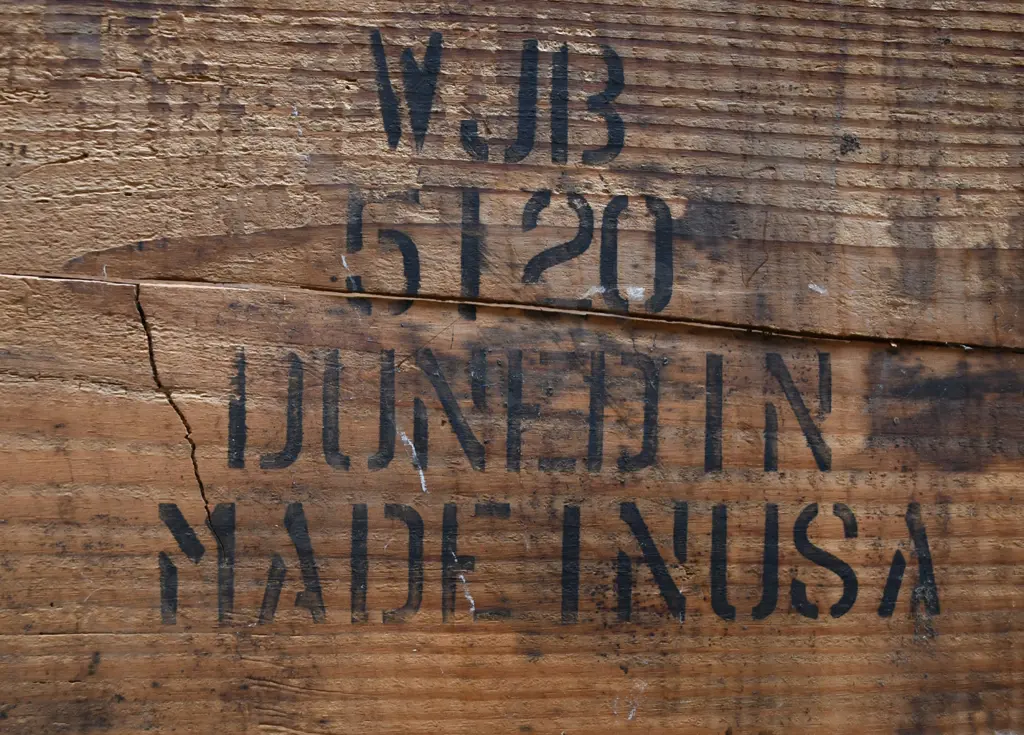 WJB
5120
DUNEDIN
MADE IN USA